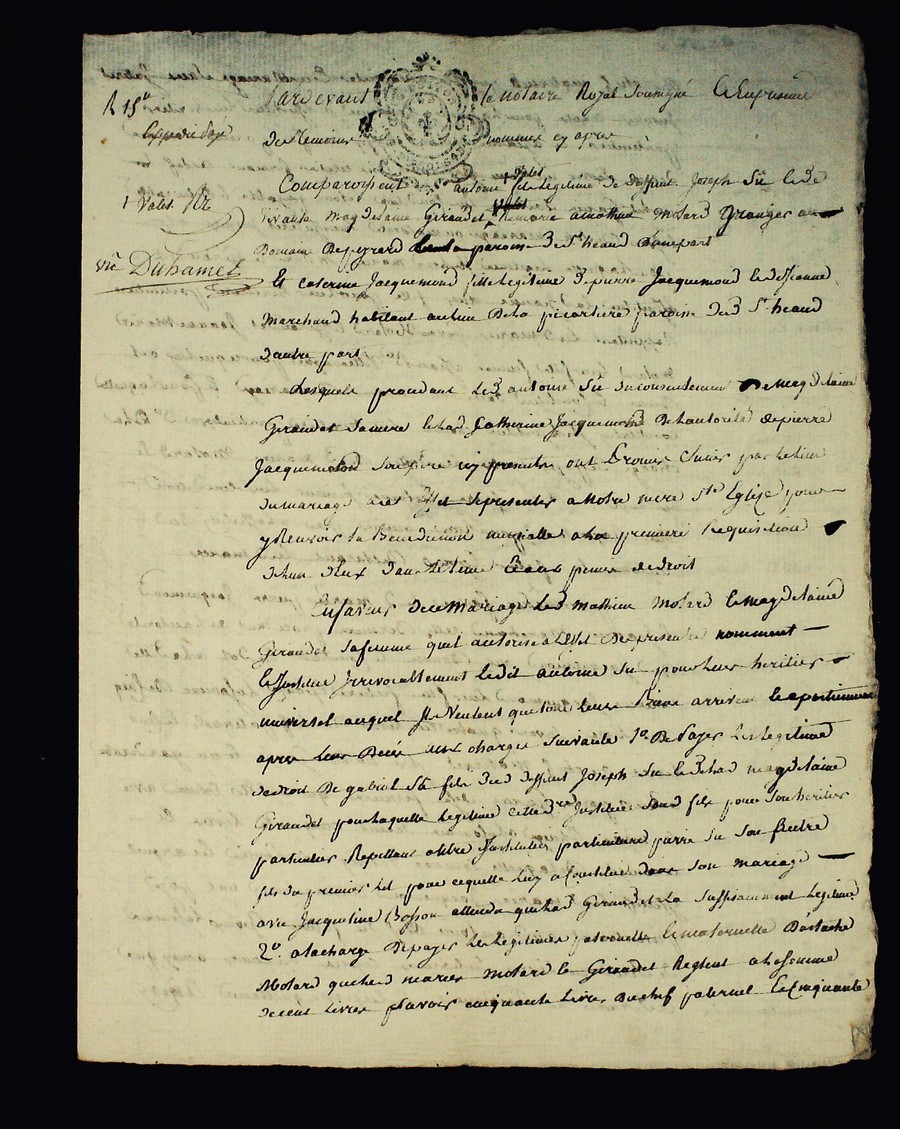 R 15ll
Pardevant le notaire Royal soussigné Et En presence
Expedié Payé
De Temoins nommes cy apres
Comparoissent antoine fils Legitime de deffunt Joseph Su Et de
1 Valet Nl
vivante Magdelaine Giraudet Remariée a mathieu Molard Granger au
Domaine De peyrard paroisse De St heand D'une part
Duhamel
Et caterine Jacquemond fille Legitime De pierre Jacquemond Et de
Marchand habitant au lieu De la picartiere paroisse Dud St heand
D'autre part
Lesquels procedant Led antoine Su Du consentement De Magdelaine
Giraudet Sa mere Et lad Catherine Jacquemond De Lautorité de pierre
Jacquemond Son pere cy presents ont Promis S'unir par le lien
Du mariage a cet Effet Se presenter a Notre mere Ste Eglise pour
y Recevoir la Benediction nuptialle a la premiere Requisition
De lun D'eux a peine de droit
En faveur De ce Mariage Led mathieu Molard Et Magdelaine
Giraudet Sa femme quil autorise a L'effet Des presentes nomment
Et Instituent Irrevocablement Ledit antoine Su pour Leur heritier
universel auquel Ils Veulent que tous leurs Biens arrivent Et apartiennent
apres Leur Decés aux charges Suivantes 1o De Payer Les Legitimes
de droit De gabriel Su fils Dud deffunt Joseph Su Et de lad magdelaine
Giraudet pour laquelle Legitime elle Institue Sond fils pour Son heritier
particulier Rapellant a titre D'Institution particuliere pierre Su Son autre
fils Du premier Lit pour ce quelle Luy a Constitué dans Son mariage
avec Jacqueline Bosson attendu que lad Giraudet La Suffisamment Legitimé
2o a la charge De payer Les Legitimes paternelle Et maternelle D'Eustache
Molard que lesd maries Molard Et Giraudet Reglent a la Somme
de cent Livres Sçavoir cinquante Livres Du chef paternel Et Cinquante